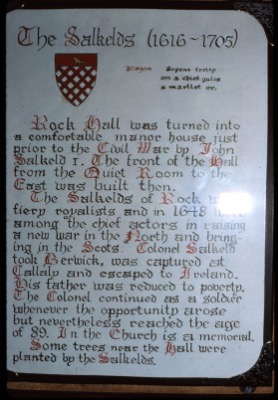 The Salkelds (1616-1705)
Blazon Argent fretty
on a chief gules
a martlet or.
Rock Hall was turned into
a comfortable manor house just
prior to the Civil War by John
Salkeld I. The front of the Hall
from the Quiet Room to the
East was built then.
The Salkelds of Rock
fiery royalists and in 1648
among the chief actors in raising
a new war in the North and bring-
ing in the Scots. Colonel Salkeld
took Berwick, was captured at
Callaly and escaped to Ireland.
His father was reduced to poverty.
The Colonel continued as a soldier
whenever the opportunity arose
but nevertheless reached the age
of 89. In the Church is a memorial.
Some trees near the Hall were
planted by the Salkelds.